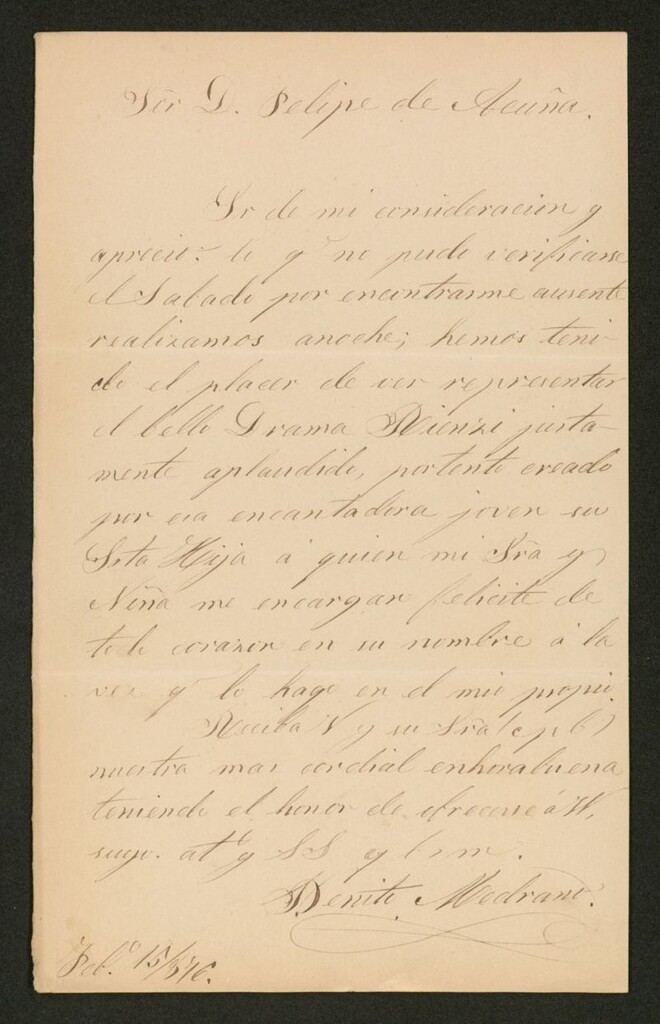 Sôr D. Felipe de Acuña.
Sr de mi consideracion y
aprecio: lo q.e no pude verificarse
el Sabado por encontrarme ausente
realizamos anoche; hemos teni-
do el placer de ver representar
el bello Drama Rienzi justa-
mente aplaudido, portento creado
por esa encantadora joven su
Srta Hija á quien mi Sra y
Niña me encargan felicite de
todo corazon en su nombre á la
vez q.e lo hago en el mio propio.
Reciba V y su Sra (c p b)
nuestra mas cordial enhorabuena
teniendo el honor de ofrecerse á VV.
suyo. at.o y SS q b s m.
Benito Medrano.
Feb.o 15/876.